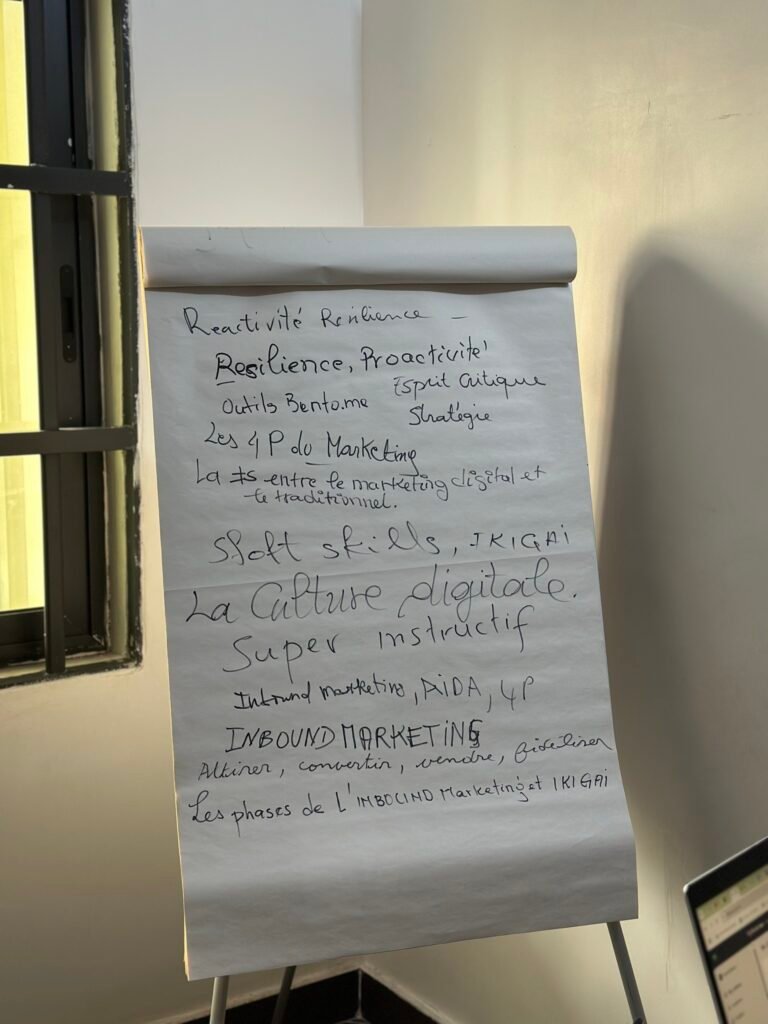 Reactivité Resilience –
Resilience, Proactivité
Esprit Critique
Outils Bento.me
Stratégie
Les 4P du Marketing
La ≠s entre le marketing digital et
le traditionnel.
Sfoft skills, IKIGAi
La Culture digitale.
Super instructif
Inbound marketing, AiDA, 4P
INBOUND MARKETiNG
Attirer, convertir, vendre, fideliser
Les phases de L'INBOUND Marketing et IKIGAi